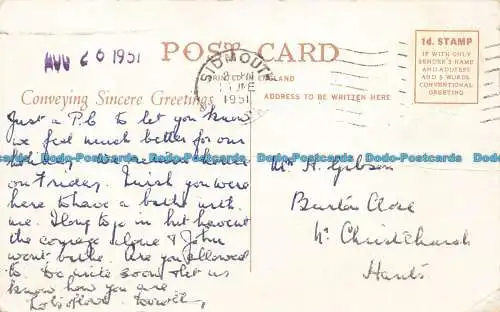 AUG 26 1951
POST CARD
SIDMOUTH
1951
PRINTED IN ENGLAND
1d. STAMP
IF WITH ONLY
SENDER'S NAME
AND ADDRESS
AND 5 WORDS
CONVENTIONAL
GREETING
Conveying Sincere Greetings
ADDRESS TO BE WRITTEN HERE
Just a P.C to let you know
we feel much better for our
holiday we
on Friday. I wish you were
here to have a bathe with
me. I long to go in but havent
the courage alone & John
wont bathe. Are you allowed
to. Be quite soon & let us
know how you are
Lots of love
Mrs H. Gibson
Burton Close
Nr Christchurch
Hants
Dodo-Postcards Dodo-Postcards Dodo-Postcards Dodo-Postcards